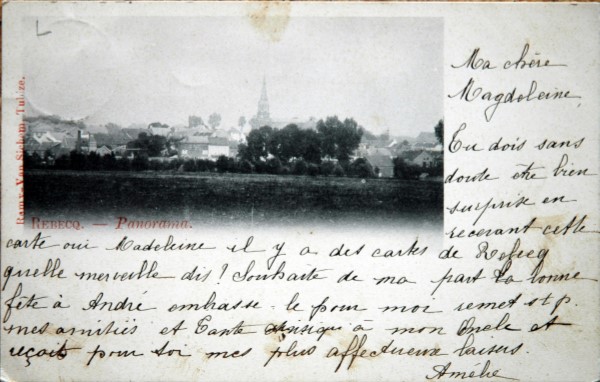 Ma chère
Magdoleine,
Tu dois sans
doute etre bien
surprise en
recevant cette
carte oui Madeleine il y a des cartes de Rebecq
quelle merveille dis! Souhaite de ma part la bonne
fête à André embrasse-le pour moi remet s.t.p.
mes amitiés et Tante ainsiqu'à mon Oncle et
reçois pour toi mes plus affectueux baisers.
Amélie
REBECQ. — Panorama.
Remy-Van Sichem, Tubize.